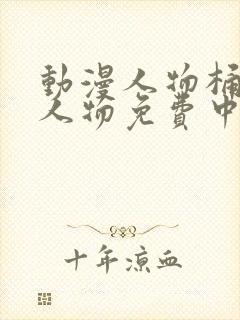 動漫人物桶
人物免費中
十年涼血